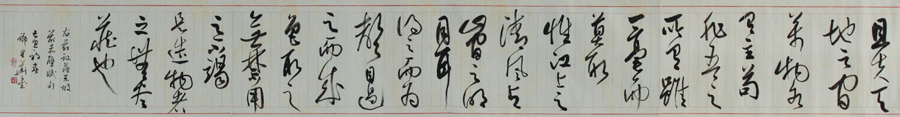 且夫天
地之間
萬物各
有主苟
非吾之
所有雖
一毫而
莫取
惟江上之
清風與
山間之明
月耳
得之而為
聲目遇
之而成
色取之
無禁用
之不竭
是造物者
之無盡
藏也
右節錄蘇東坡
前赤壁賦句